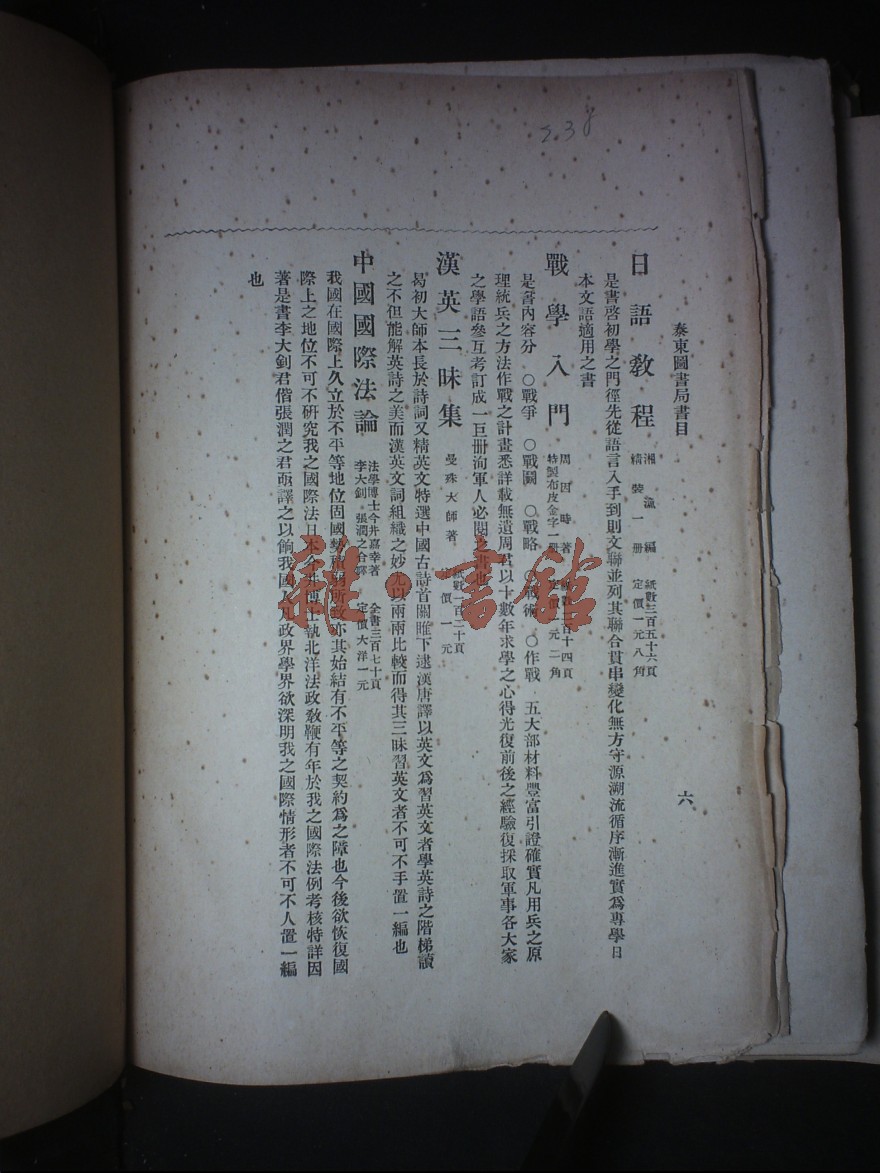 2.38
泰東圖書局書目
六
日語敎程
湘漁編 紙數三百五十六頁
精裝一冊 定價一元八角
是書啓初學之門徑先從語言入手到則文聯並列其聯合貫串變化無方守源溯流循序漸進實爲專學日
本文語適用之書
戰學入門
周因時著 紙數二百十四頁
特製布皮金字一册 定價一元二角
是書內容分 〇戰爭 〇戰鬭 〇戰略 〇戰術 〇作戰 五大部材料豐富引證確實凡用兵之原
理統兵之方法作戰之計畫悉詳載無遺周君以十數年求學之心得光復前後之經驗復採取軍事各大家
之學語參互考訂成一巨册洵軍人必閱之書也
漢英三昧集
曼殊大師著
紙數一百二十頁
定價一元
曷初大師本長於詩詞又精英文特選中國古詩首關雎下逮漢唐譯以英文爲習英文者學英詩之階梯讀
之不但能解英詩之美而漢英文詞組織之妙尤以兩兩比較而得其三昧習英文者不可不手置一編也
中國國際法論
法學博士今井嘉幸著 全書三百七十頁
李大釗 張潤之合譯 定價大洋一元
我國在國際上久立於不平等地位固國勢積弱所致亦其始結有不平等之契約爲之障也今後欲恢復國
際上之地位不可不硏究我之國際法日本今井博士執北洋法政敎鞭有年於我之國際法例考核特詳因
著是書李大釗君偕張潤之君亟譯之以餉我國人凡政界學界欲深明我之國際情形者不可不人置一編
也
雜·書館